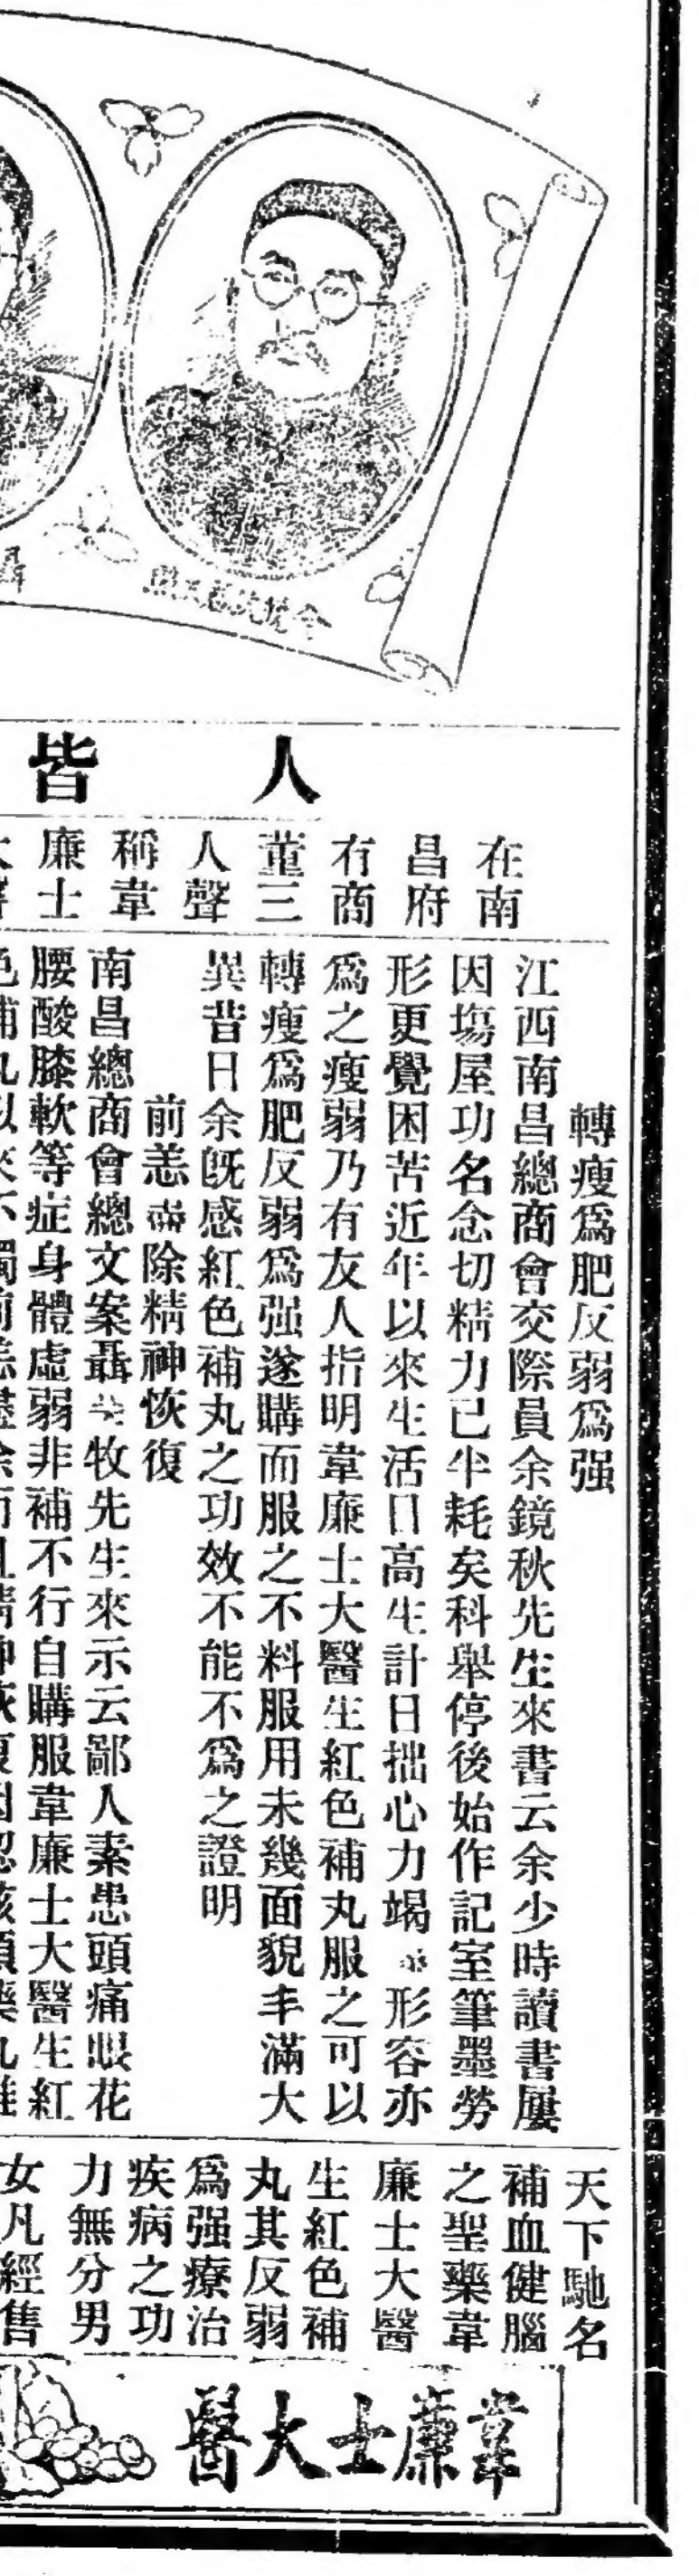 人皆
在南
昌府
有商
董三
人聲
稱韋
廉士
轉瘦爲肥反弱爲强
江西南昌總商會交際員余鏡秋先生來書云余少時讀書屢
因塲屋功名念切精力已半耗矣科舉停後始作記室筆墨勞
形更覺困苦近年以來生活日高生計日拙心力竭形容亦
爲之瘦弱乃有友人指明韋廉士大醫生紅色補丸服之可以
轉瘦爲肥反弱爲强遂購而服之不料服用未幾面貌丰滿大
異昔日余旣感紅色補丸之功效不能不爲之證明
前恙除精神恢復
南昌總商會總文案聶牧先生來示云鄙人素患頭痛眼花
腰酸膝軟等症身體虛弱非補不行自購服韋廉士大醫生紅
天下馳名
補血健腦
之聖藥韋
廉士大醫
生紅色補
丸其反弱
爲强療治
疾病之功
力無分男
女凡經售
韋廉士大醫